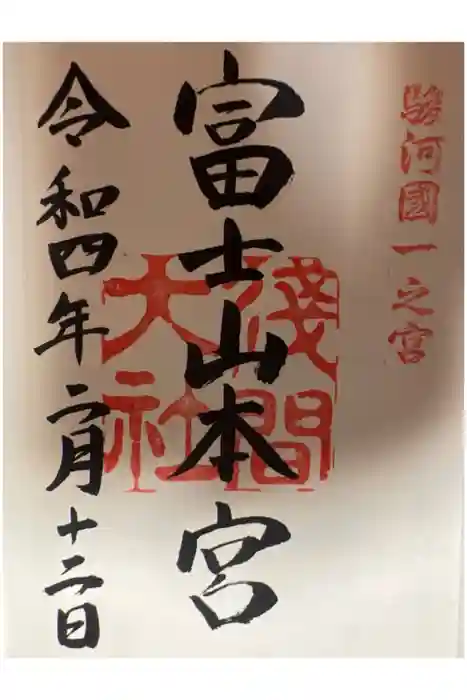 駿河國一之宮
富士山本宮
淺間大社
令和四年二月十二日